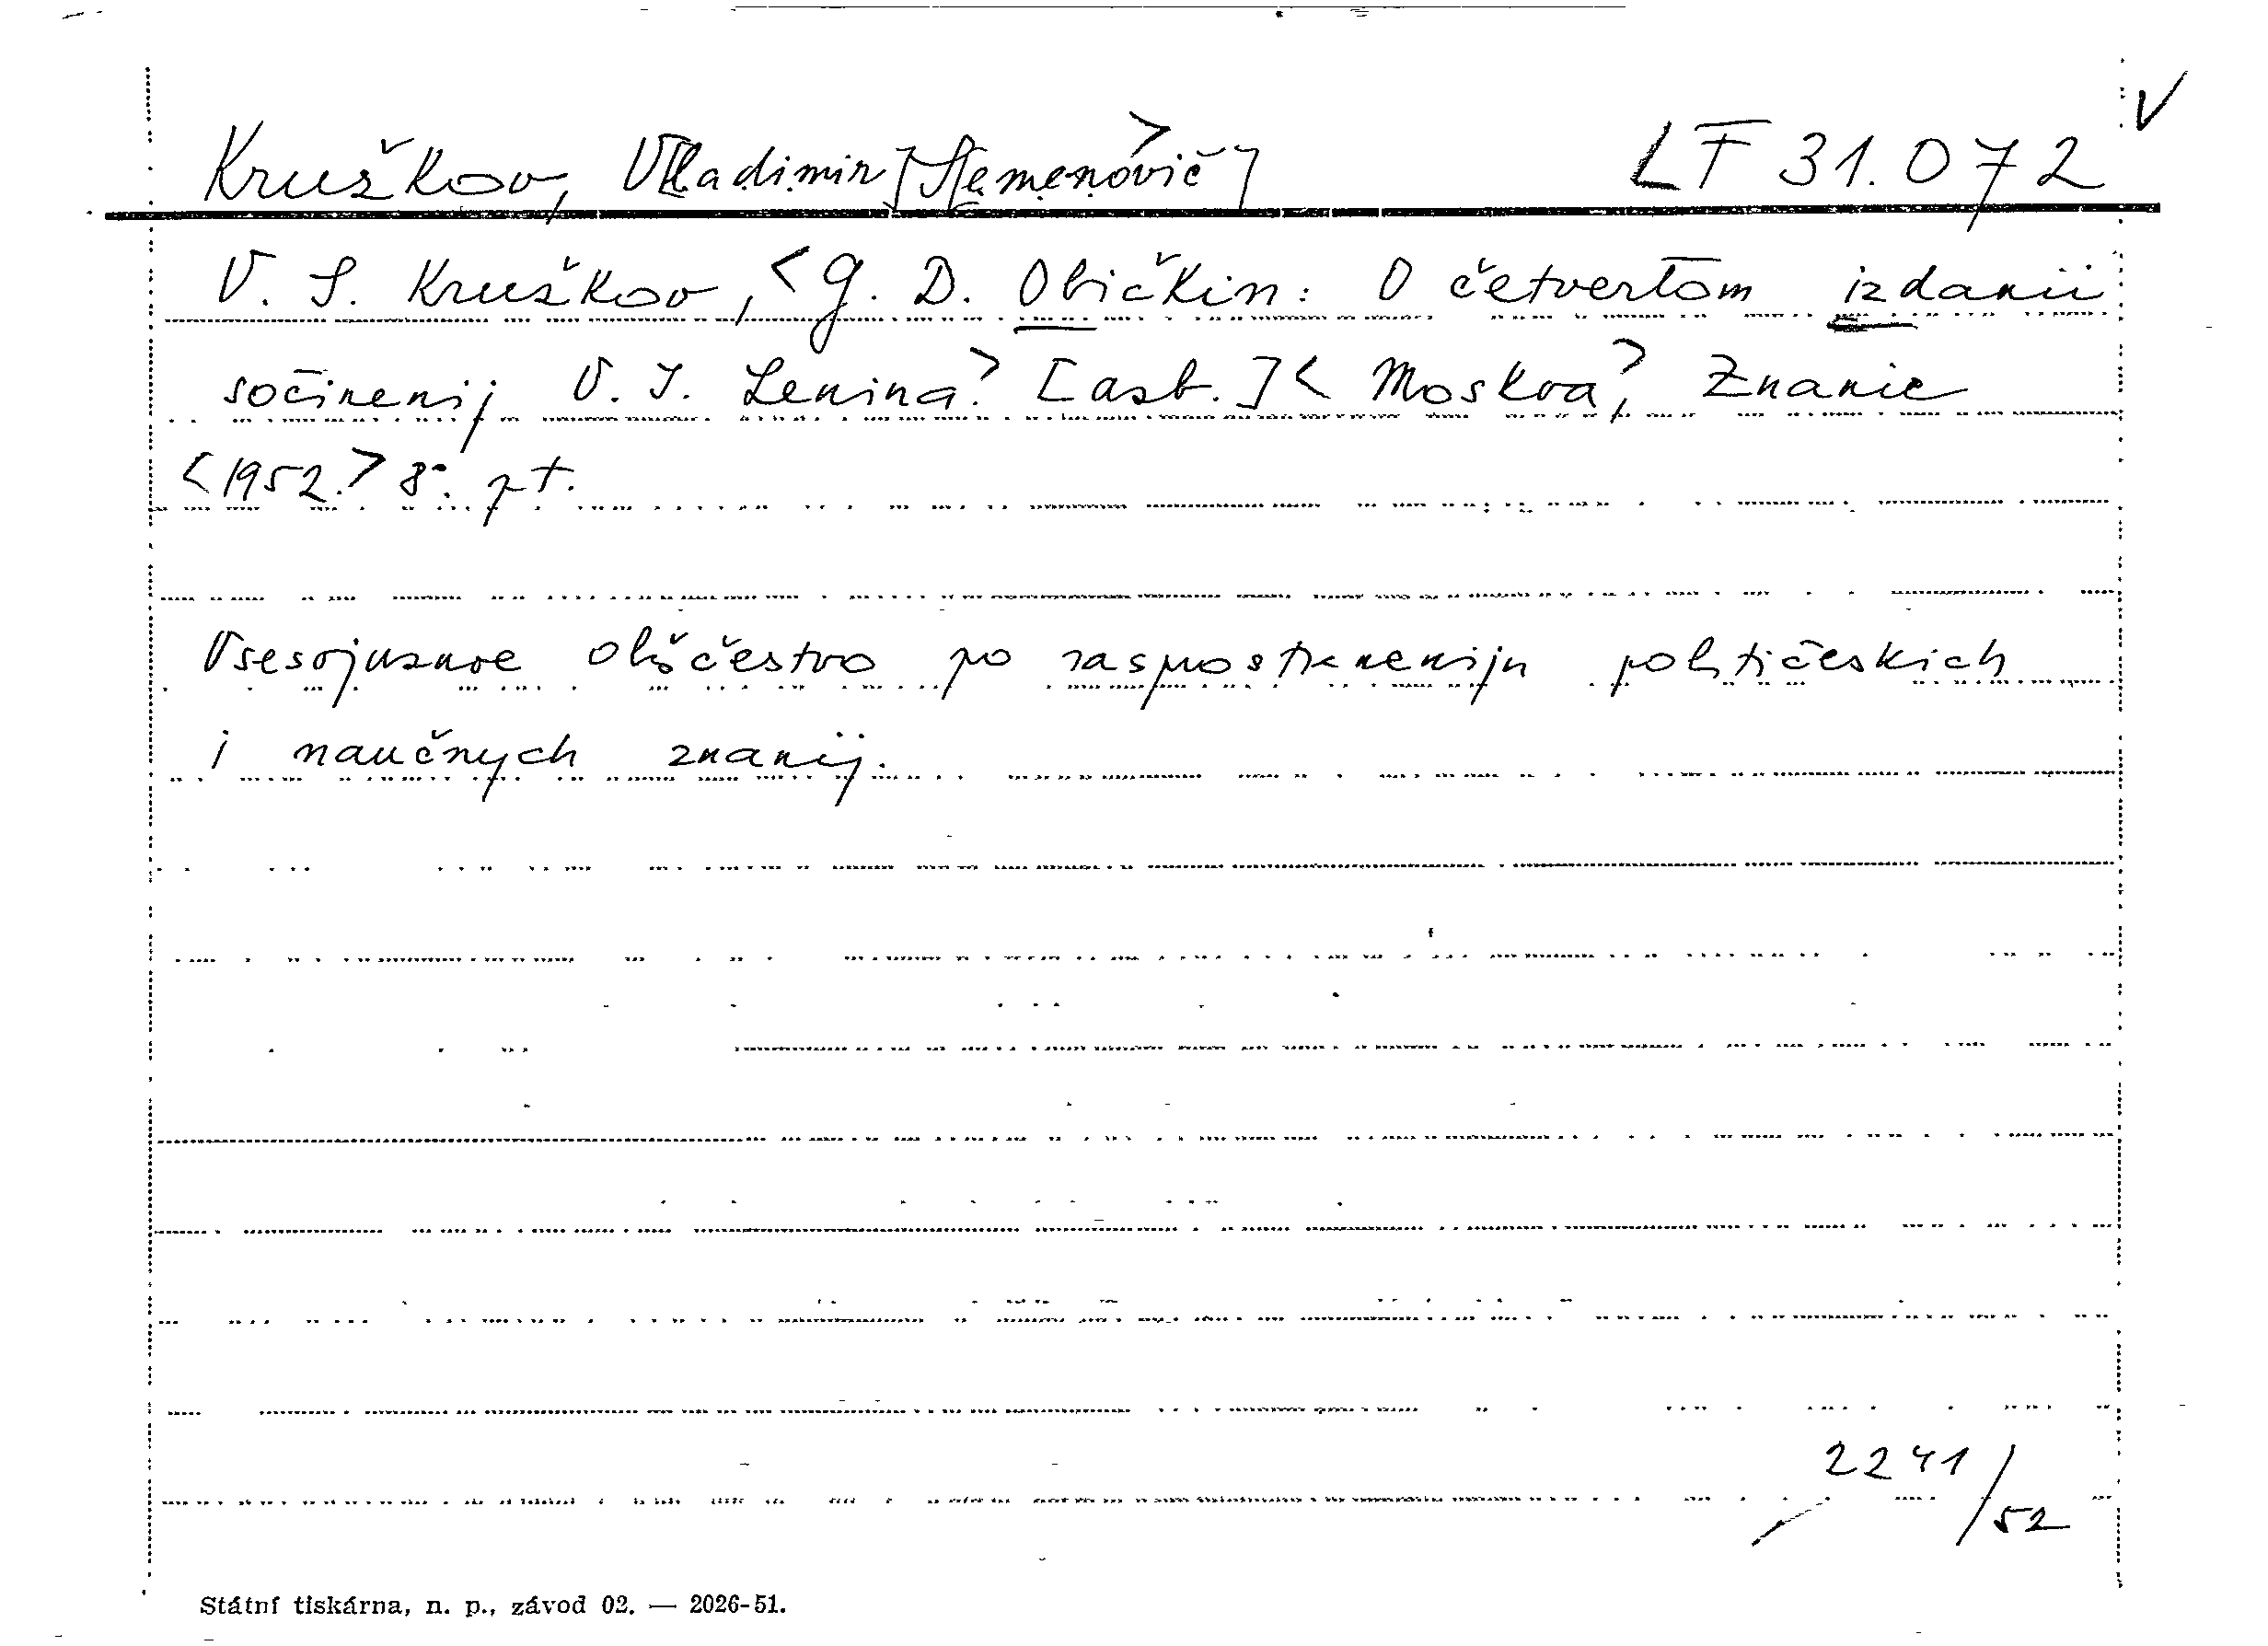 Kruškov, V[ladimir] S[emenovič> ] LF 31.072 V
V. S. Kruškov, <G. D. Običkin: O četvertom izdanii
sočinenij V. I. Lenina> [azb.] < Moskva>, Znanie
<1952.> 8°. pt.
Vsesojuznoe obščestvo po rasprostraneniju političeskich
i naučnych znanij.
2241/52
Státní tiskárna, n. p., závod 02. — 2026-51.